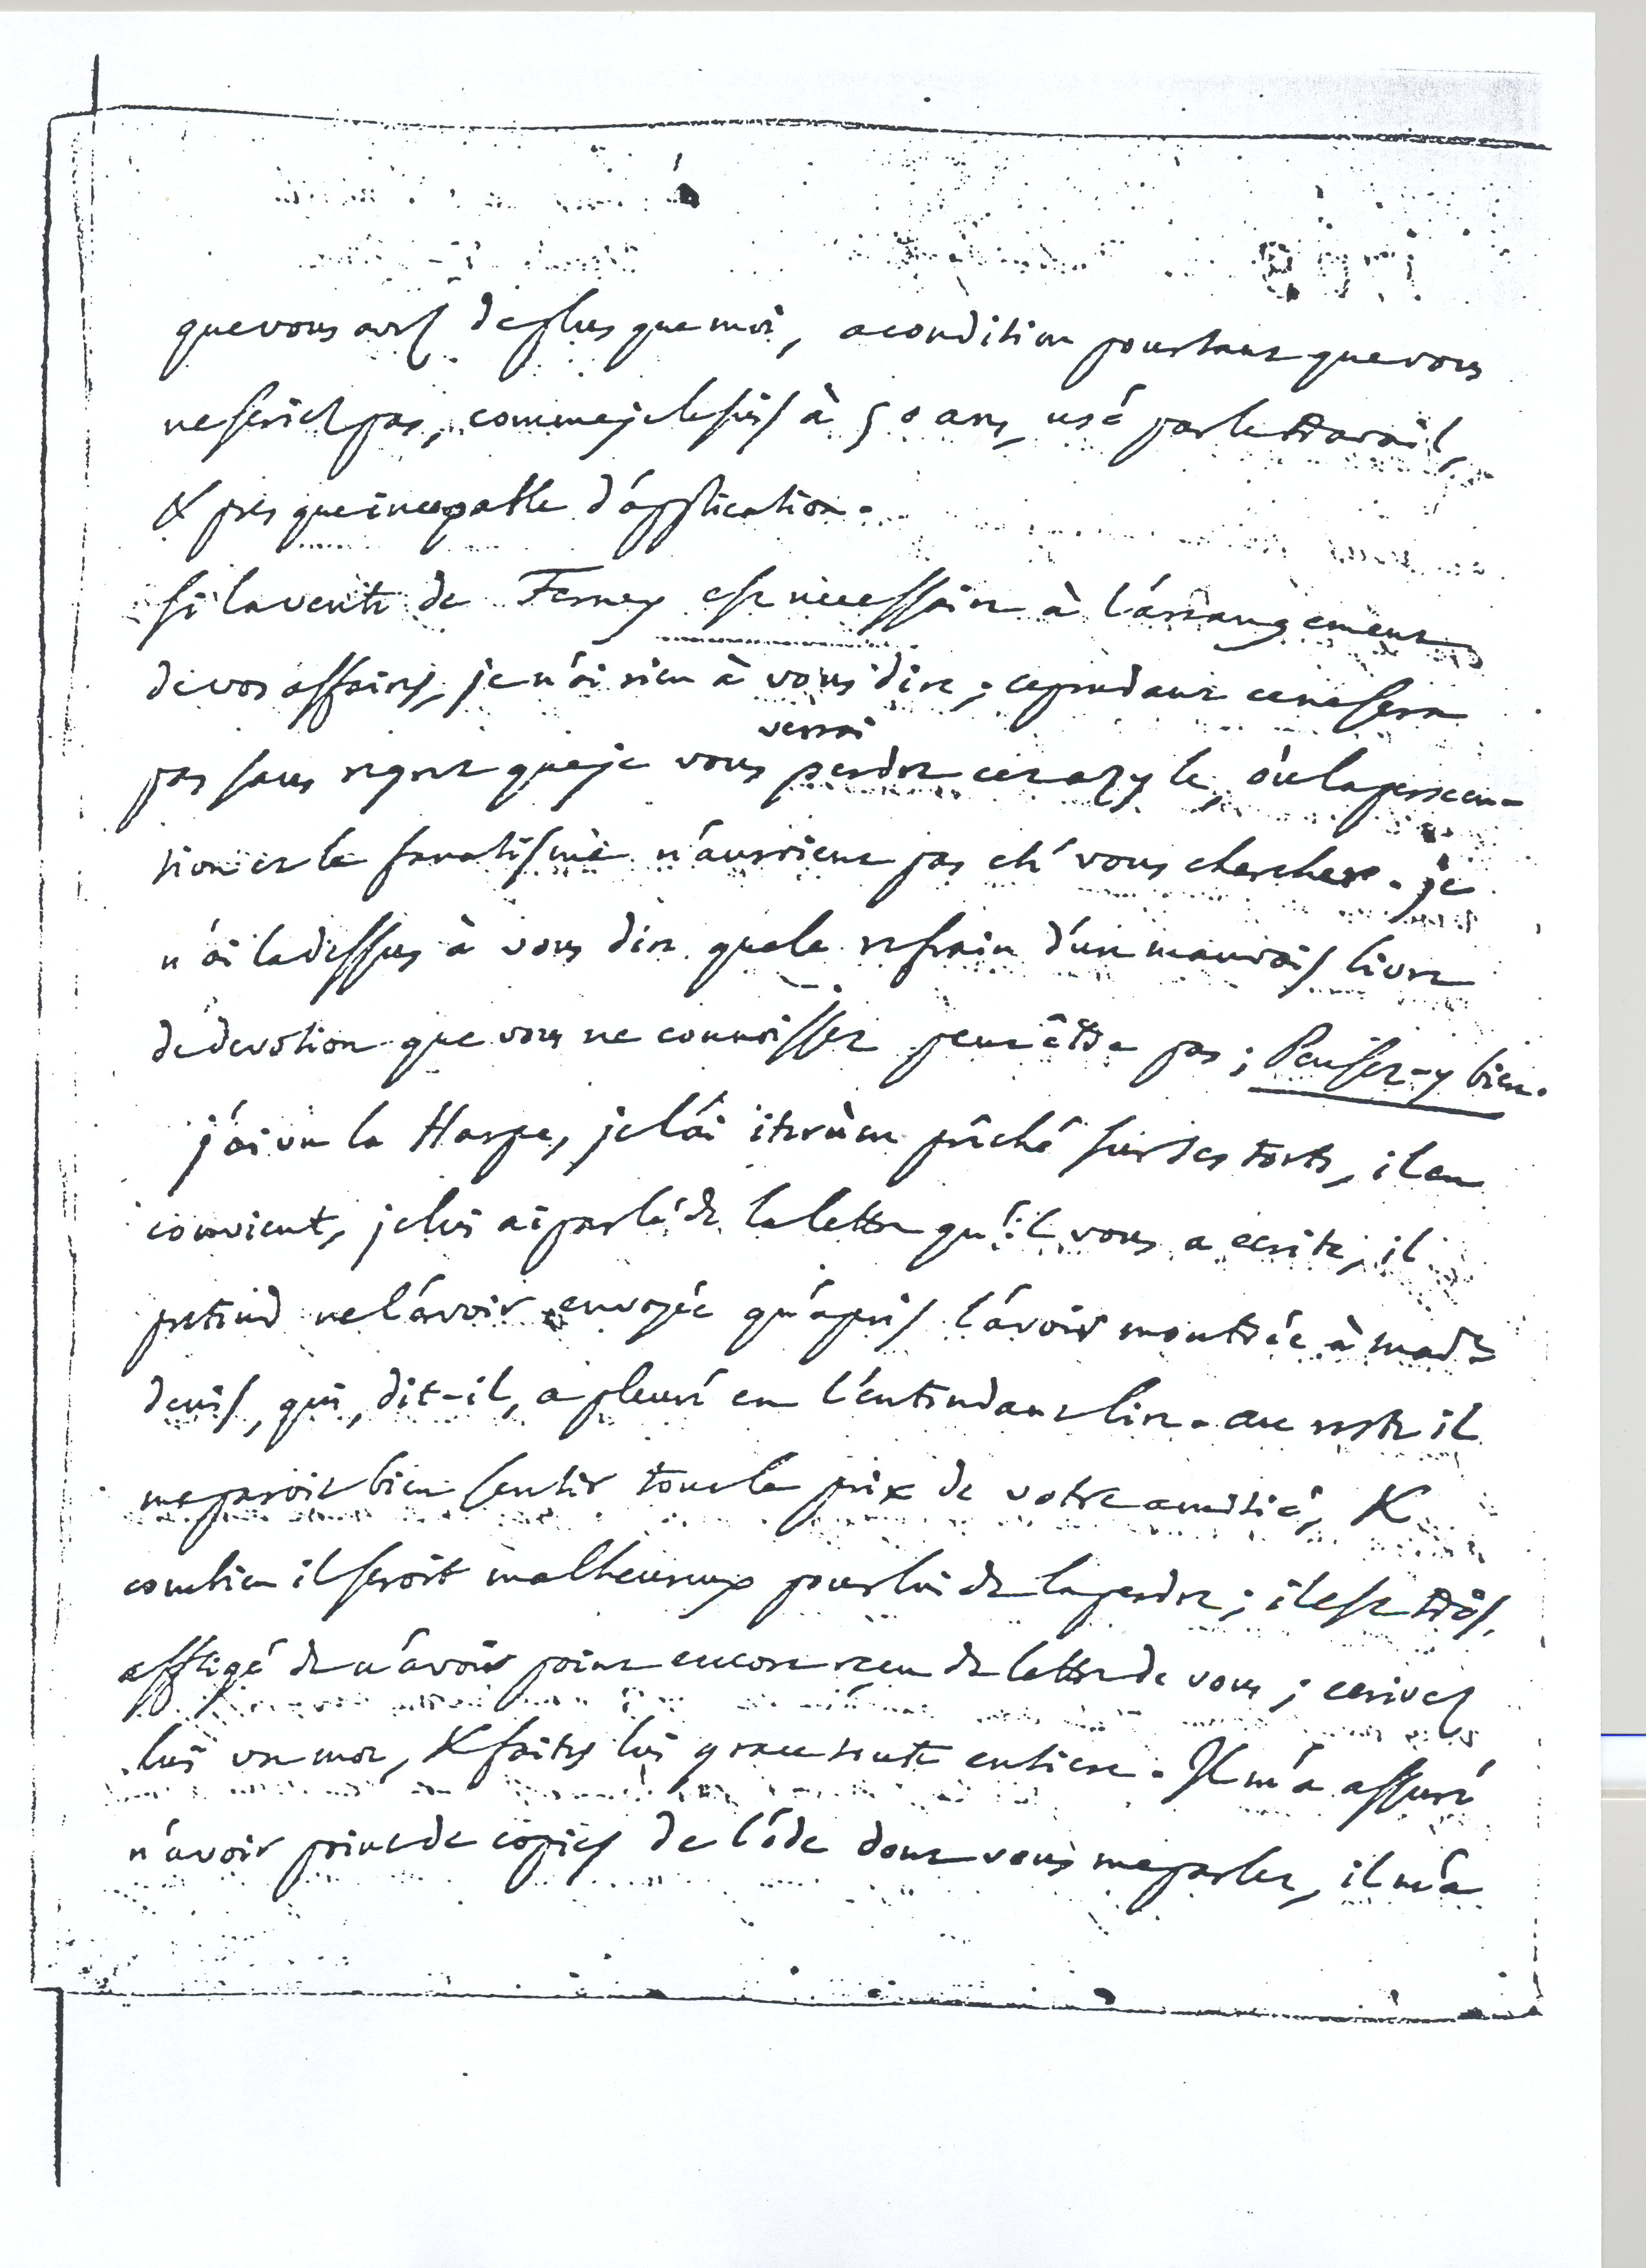 que vous avez de plus que moi, a condition pourtant que vous
ne seriez pas, comme je le suis à 50 ans, usé par le travail,
& presque incapable d'application.
si la vente de Ferney est necessaire à l'arrangement
de vos affaires, je n'ai rien à vous dire ; cependant ce ne sera
verrai
pas sans regret que je vous perdre cet azyle, où la persecu-
tion et le fanatisme n'auroient pas eté vous chercher. je
n'ai la dessus à vous dire que le refrain d'un mauvais livre
de devotion que vous ne connoissez peut être pas ; Pensez-y bien.
j'ai vu la Harpe, je l'ai iterùm prêché sur ses torts, il en
convient, je lui ai parlé de la lettre qu'il vous a ecrite, il
pretend ne l'avoir envoyée qu'après l'avoir montrée à made
denis, qui, dit-il, a pleuré en l'entendant lire. au reste il
me paroit bien sentir tout le prix de votre amitié, &
combien il seroit malheureux pour lui de la perdre ; il est très
affligé de n'avoir point encore reçu de lettre de vous ; ecrivez
lui un mot, & faites lui grace toute entiere. Il m'a assuré
n'avoir point de copies de l'ode dont vous me parlez, il m'a